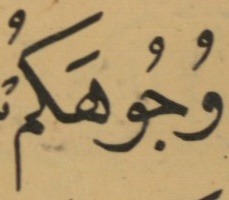 وُجُوهَكُم